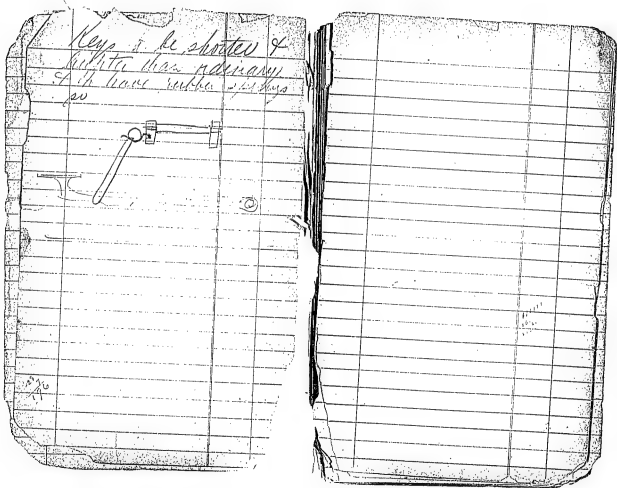 Keys to be shorter &
lighter than ordinary
& to have rubber springs
so